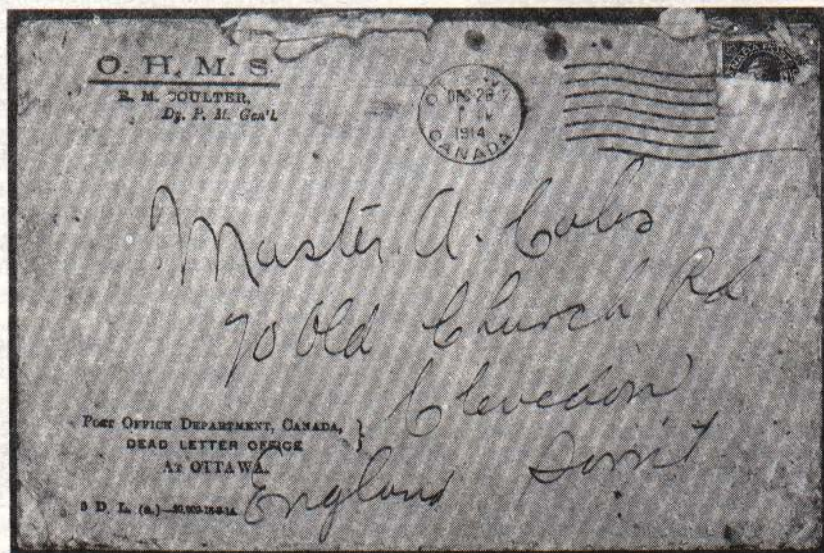 O. H. M. S.
R. M. COULTER,
Dy. P. M. Gen'l.
DEC 28
1914
CANADA
Master. A. Coles
70 Old Church Rd.
Clevedon
Somst
England
POST OFFICE DEPARTMENT, CANADA,
DEAD LETTER OFFICE
AT OTTAWA.
D. L. (a.)